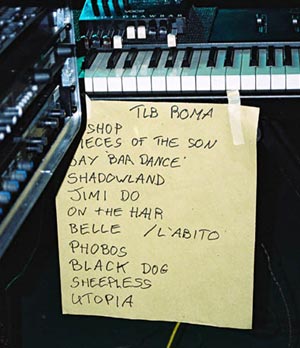 TLB ROMA
SHOP
IECES OF THE SON
JAY 'BAR DANCE'
SHADOWLAND
JIMI DO
ON THE HAIR
BELLE / L'ABITO
PHOBOS
BLACK DOG
SHEEPLESS
UTOPIA